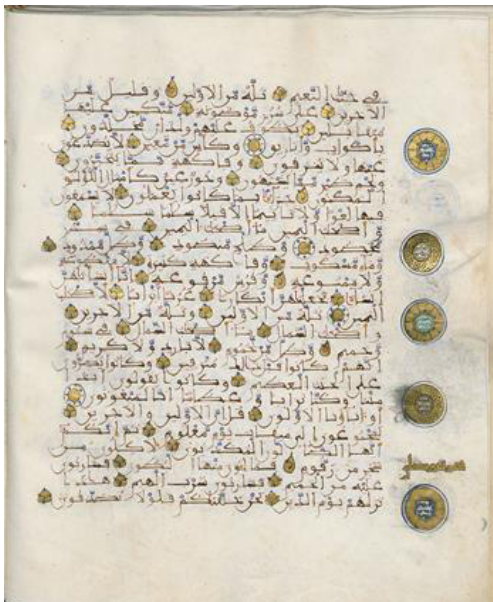 في جنت النعيم ثلة من الاولين وقليل من
الاخرين على سرر موضونة متكين عليها
متقبلين يطوف عليهم ولدن مخلدون
باكواب واباريق وكاس من معين لا يصدعون
عنها ولا ينزفون وفكهة مما يتخيرون
ولحم طير مما يشتهون وحور عين كامثل اللؤلؤ
المكنون جزاء بما كانوا يعملون لا يسمعون
فيها لغوا ولا تاثيما الا قيلا سلما سلما
واصحب اليمين ما اصحب اليمين في سدر
مخضود وطلح منضود وظل ممدود
وماء مسكوب وفكهة كثيرة لا مقطوعة
ولا ممنوعة وفرش مرفوعة انا انشانهن
انشاء فجعلنهن ابكارا عربا اترابا لاصحب
اليمين ثلة من الاولين وثلة من الاخرين
واصحب الشمال ما اصحب الشمال في سموم
وحميم وظل من يحموم لا بارد ولا كريم
انهم كانوا قبل ذلك مترفين وكانوا يصرون
على الحنث العظيم وكانوا يقولون ايذا
متنا وكنا ترابا وعظما انا لمبعوثون
او اباونا الاولون قل ان الاولين والاخرين
لمجموعون الى ميقت يوم معلوم ثم انكم
ايها الضالون المكذبون لاكلون من
شجر من زقوم فمالون منها البطون فشربون
عليه من الحميم فشربون شرب الهيم هذا
نزلهم يوم الدين نحن خلقنكم فلولا تصدقون